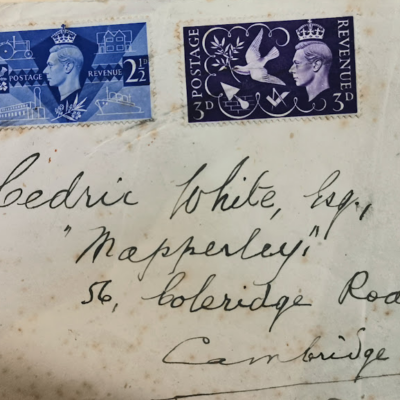 POSTAGE REVENUE 2½D
POSTAGE 3D REVENUE 3D
Cedric White, Esq.,
"Mapperley,"
56, Coleridge Roa
Cambridge